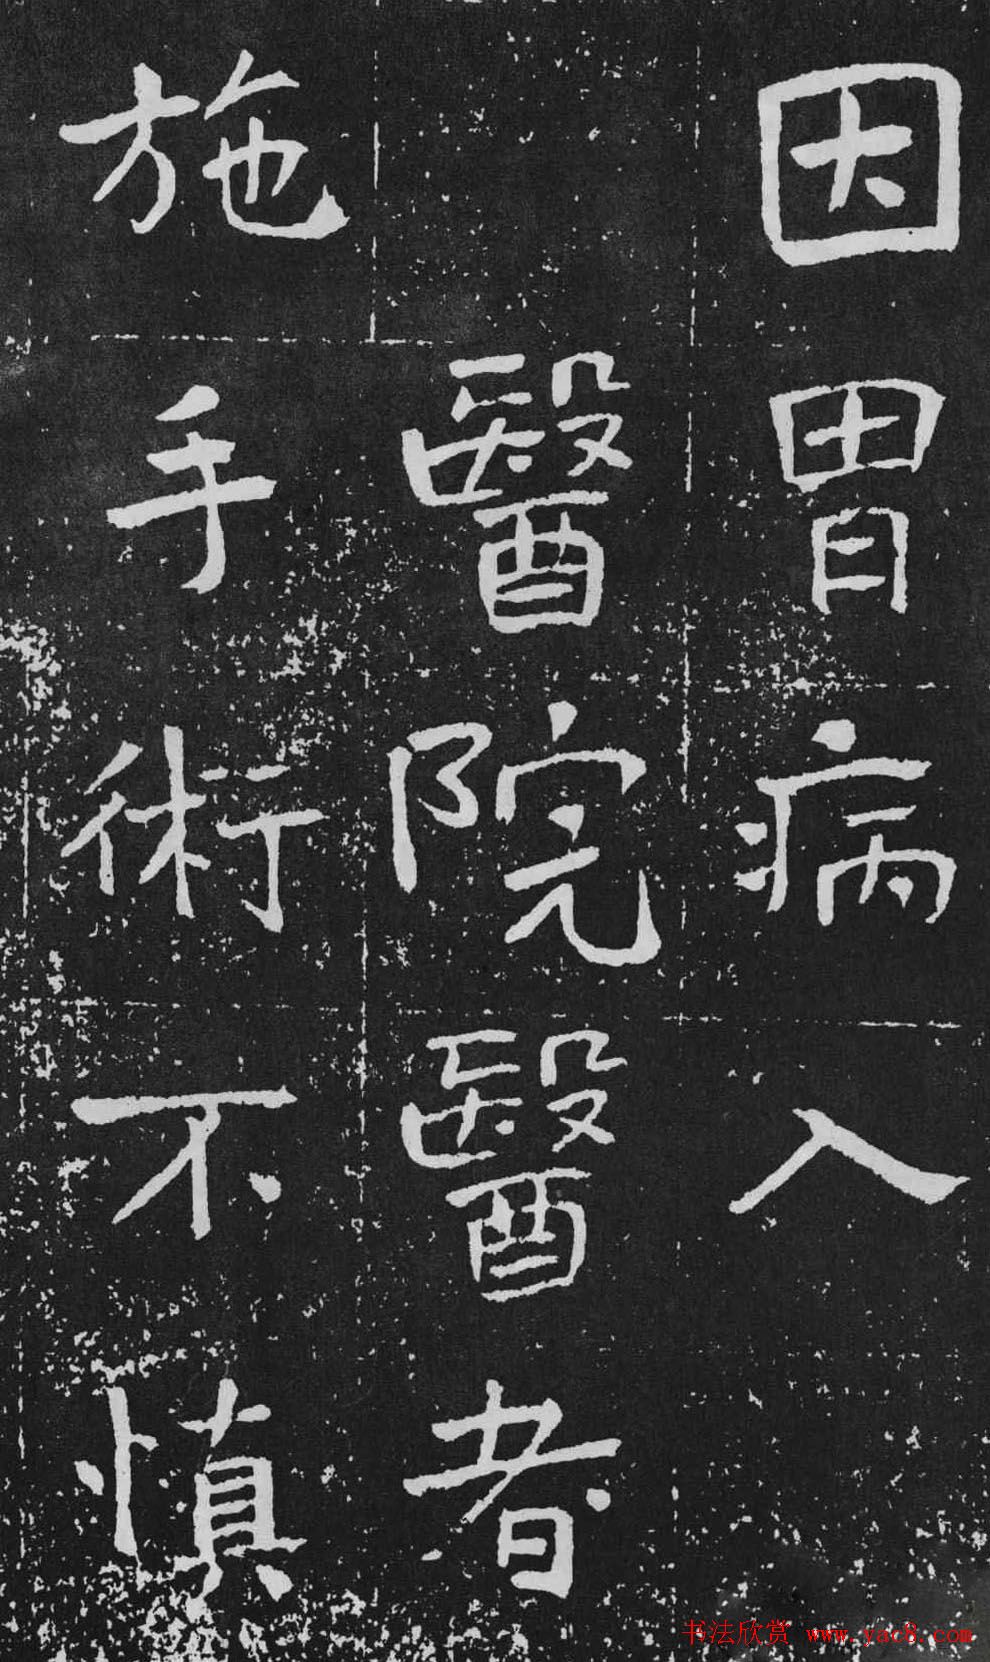 因胃病入
醫院醫者
施手術不慎
书法欣赏 www.yac8.com